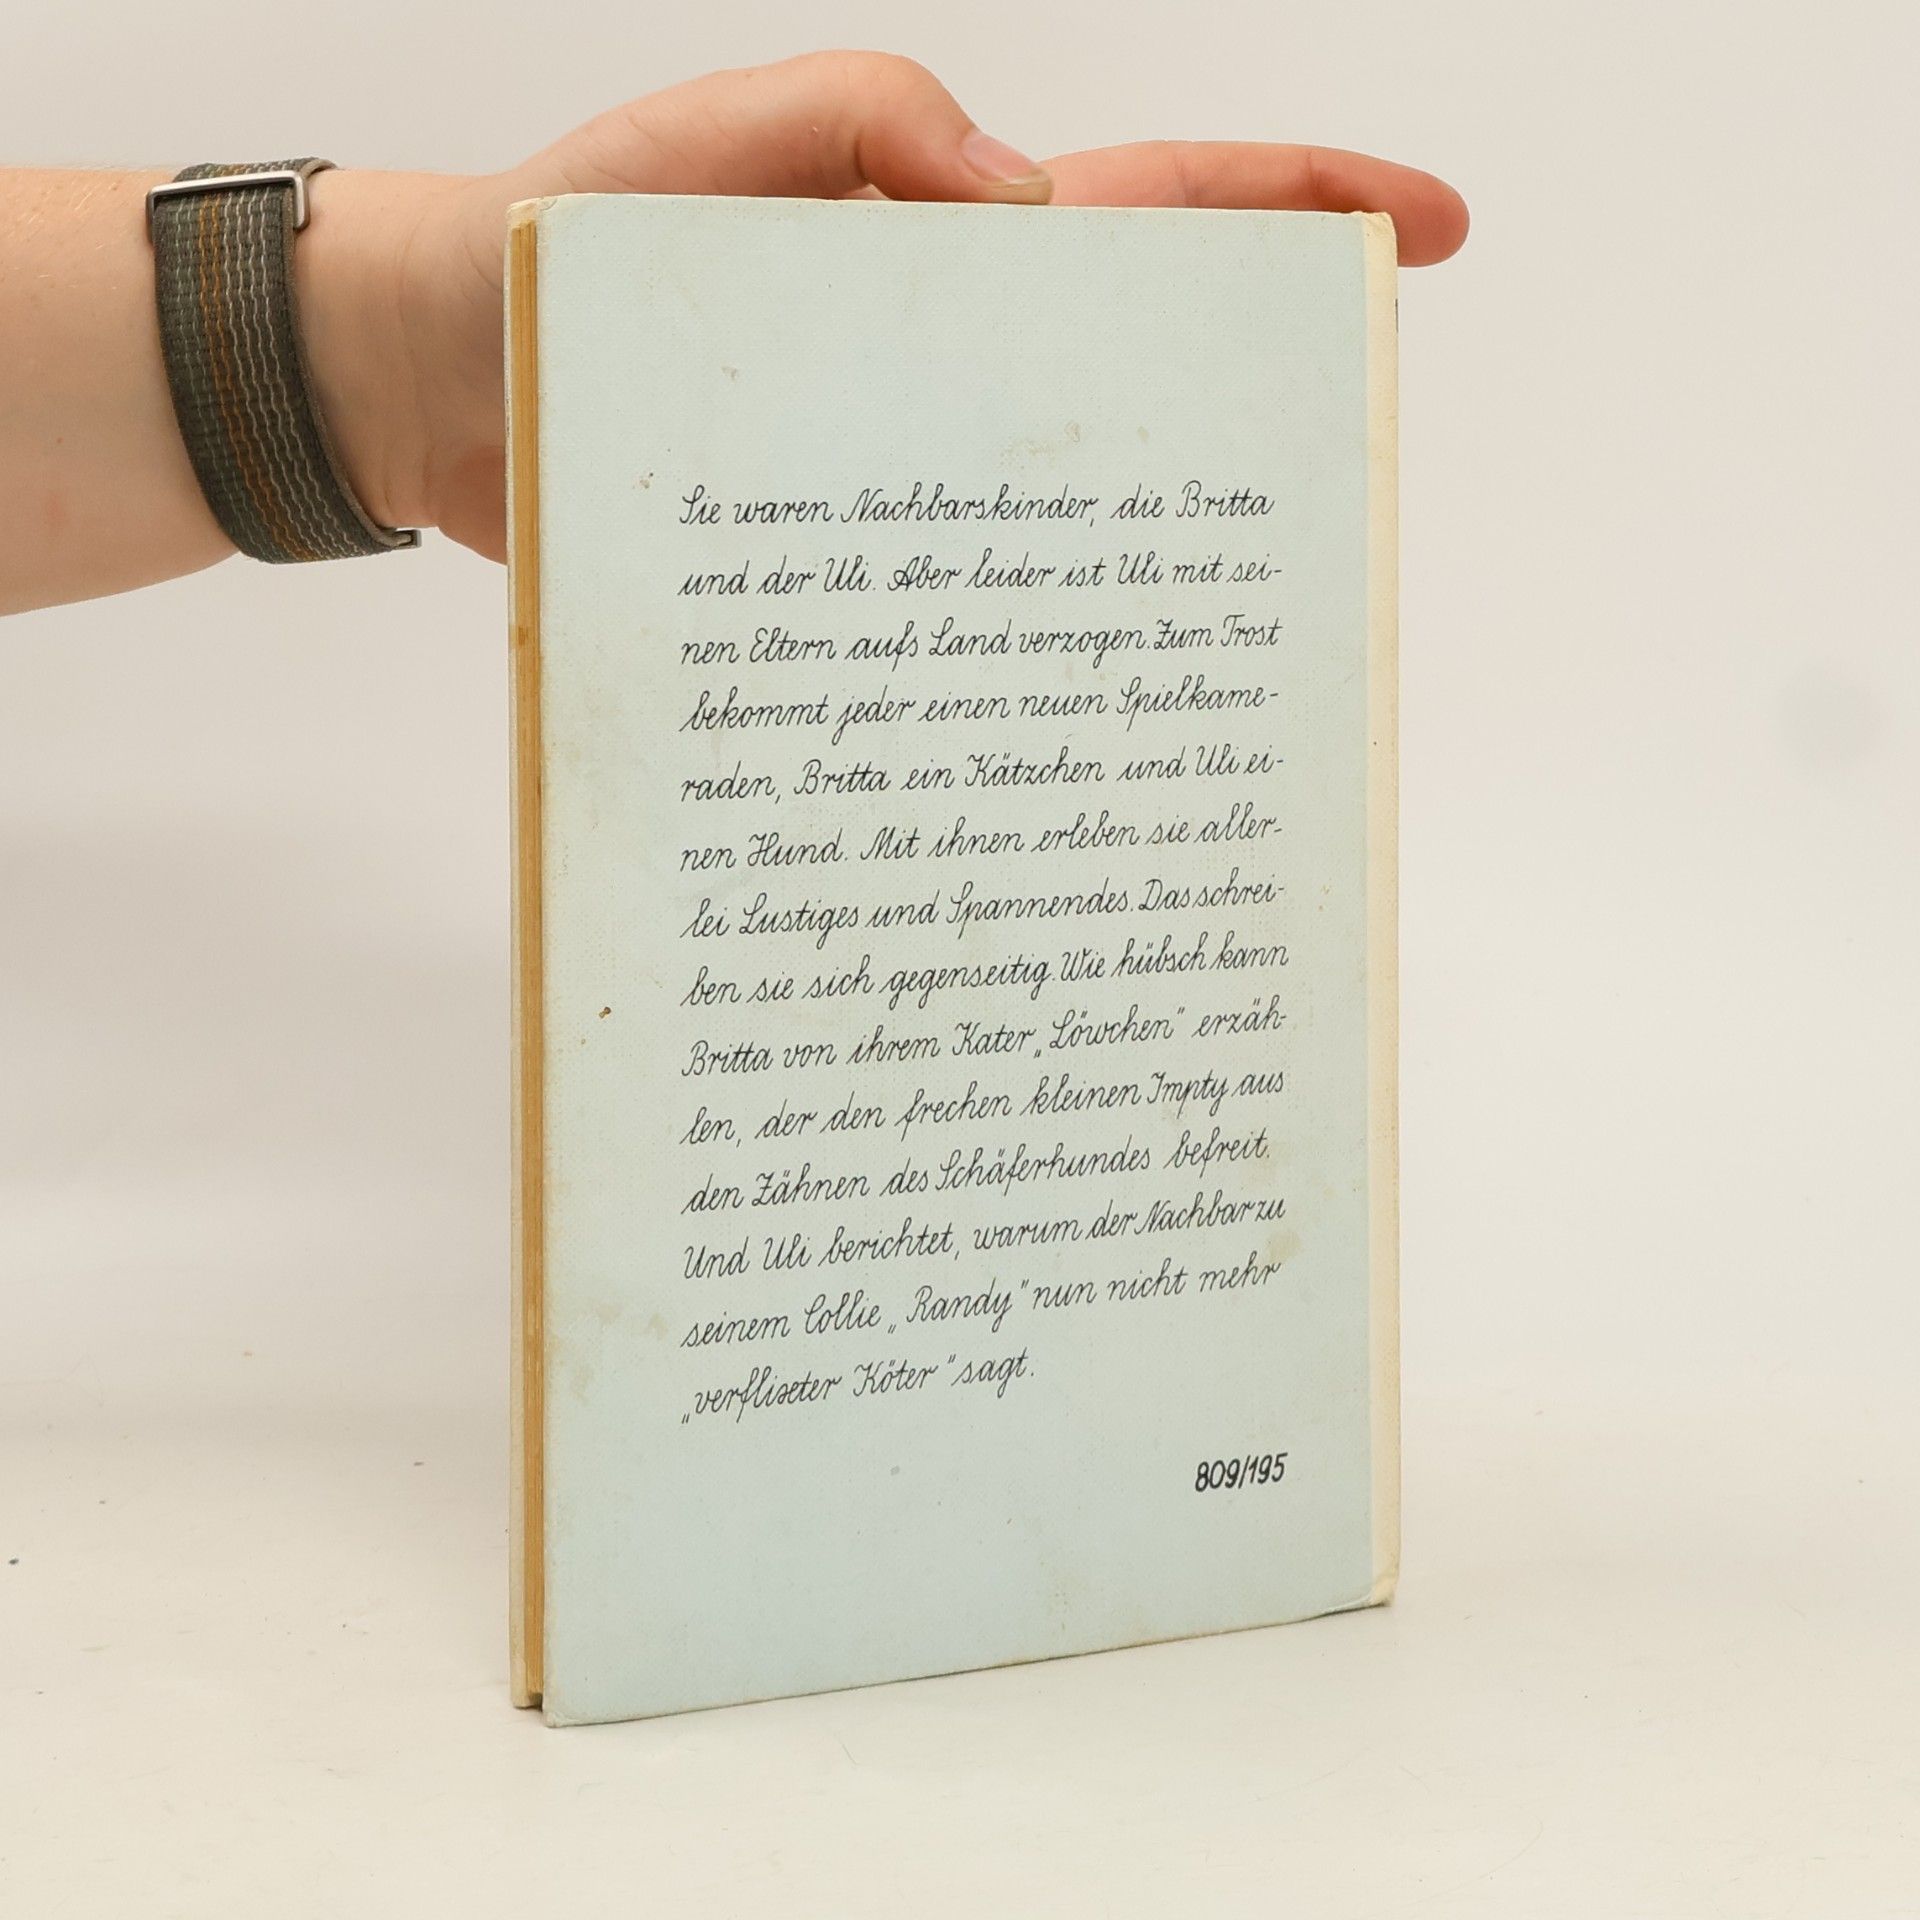 Sie waren Nachbarskinder, die Britta
und der Uli. Aber leider ist Uli mit sei-
nen Eltern aufs Land verzogen. Zum Trost
bekommt jeder einen neuen Spielkame-
raden, Britta ein Kätzchen und Uli ei-
nen Hund. Mit ihnen erleben sie aller-
lei Lustiges und Spannendes. Das schrei-
ben sie sich gegenseitig. Wie hübsch kann
Britta von ihrem Kater „Löwchen" erzäh-
len, der den frechen kleinen Impty aus
den Zähnen des Schäferhundes befreit.
Und Uli berichtet, warum der Nachbar zu
seinem Collie „Randy" nun nicht mehr
„verflixter Köter" sagt.
809/195